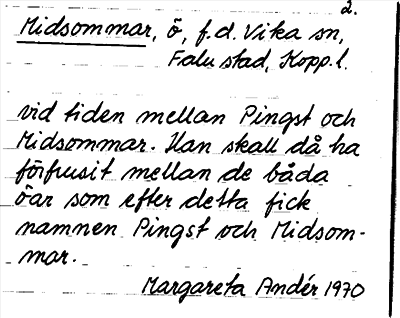 2.
Midsommar, ö, f.d. Vika sn,
Falu stad, Kopp.l.
vid tiden mellan Pingst och
Midsommar. Han skall då ha
förfrusit mellan de båda
öar som efter detta fick
namnen Pingst och Midsom-
mar.
Margareta Andér 1970